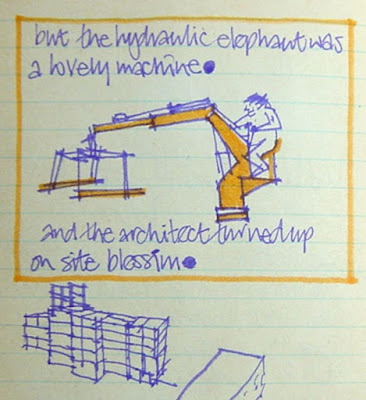 but the hydraulic elephant was
a lovely machine.
and the architect turned up
on site blessim.